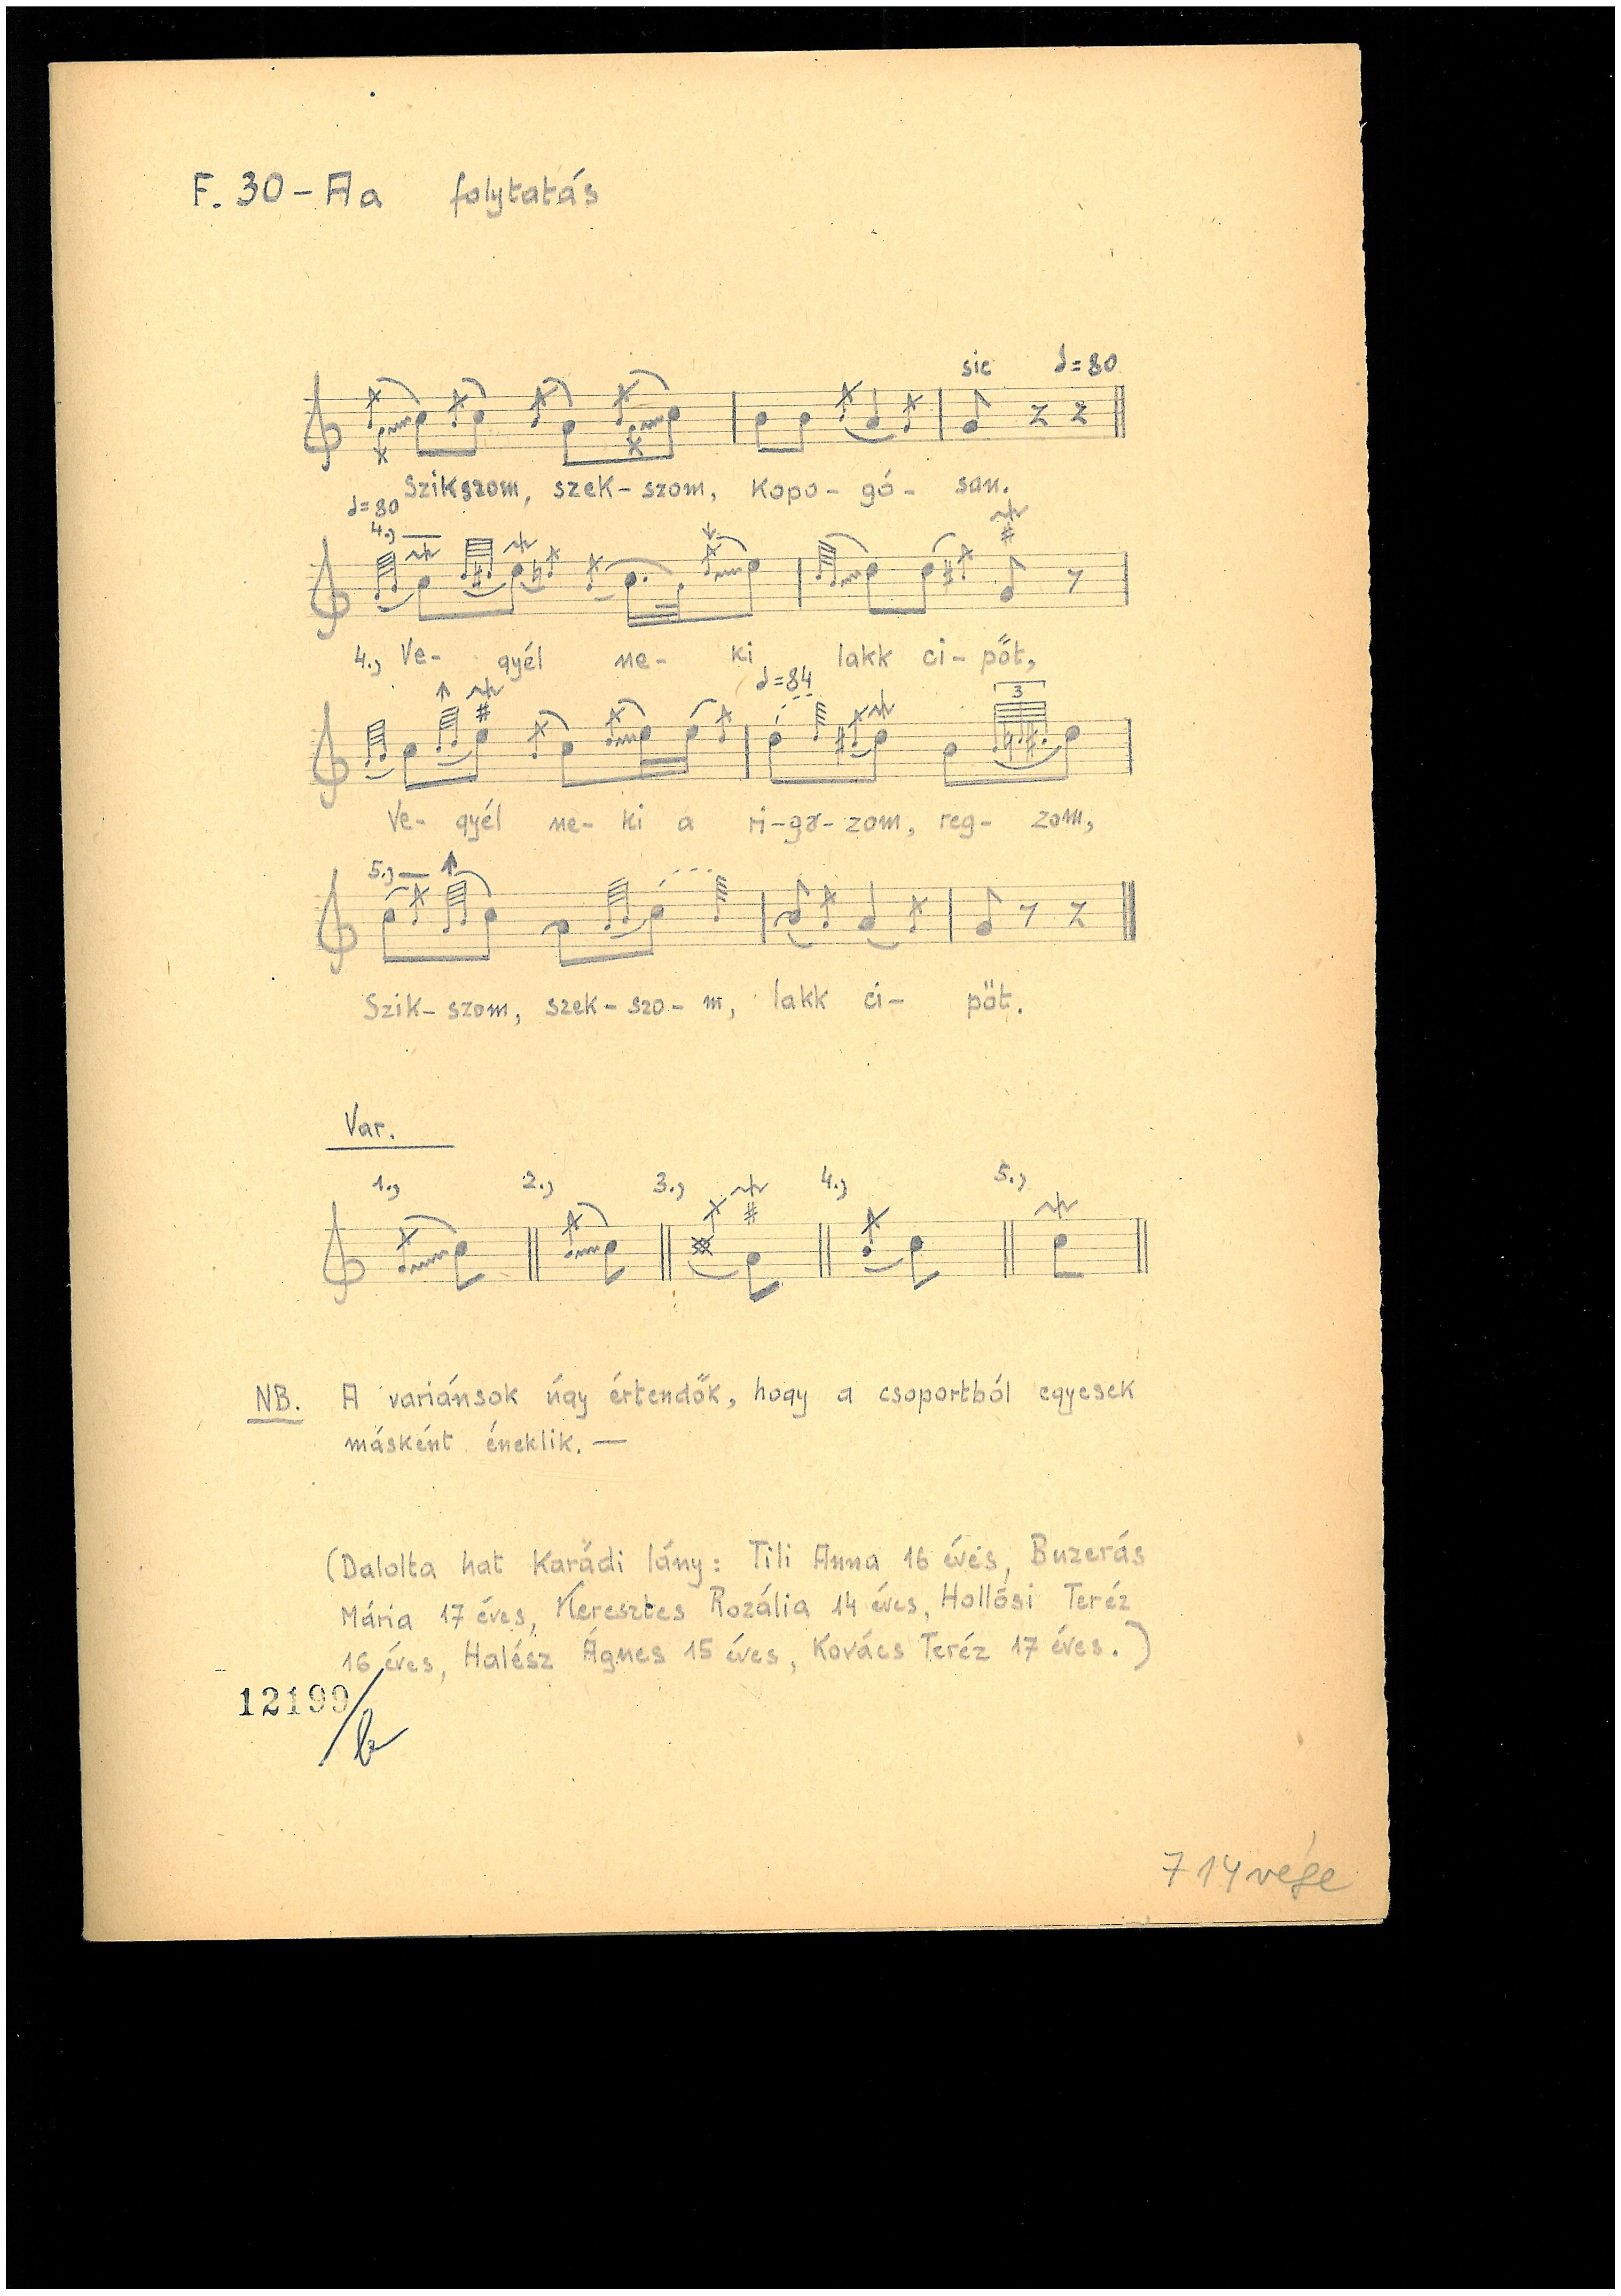 F. 30 - Aa folytatás
sic ♩=80
Szikszom, szek- szom, kopo- gó- san.
♩=80
4.,
4., Ve- gyél ne- ki lakk ci- pőt,
♩=84
3
Ve- gyél ne- ki a ri-gə- zom, reg- zom,
5.,
Szik- szom, szek- szo- m, lakk ci- pőt.
Var.
1., 2., 3., 4., 5.,
NB. A variánsok úgy értendők, hogy a csoportból egyesek
másként éneklik. —
(Dalolta hat Karádi lány: Tili Anna 16 éves, Buzerás
Mária 17 éves, Keresztes Rozália 14 éves, Hollósi Teréz
16 éves, Halész Ágnes 15 éves, Kovács Teréz 17 éves.)
12199/b
714 vége